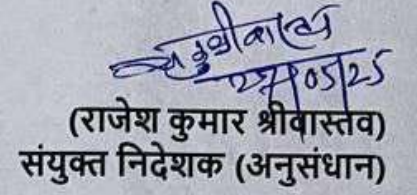 27/05/25
(राजेश कुमार श्रीवास्तव)
संयुक्त निदेशक (अनुसंधान)